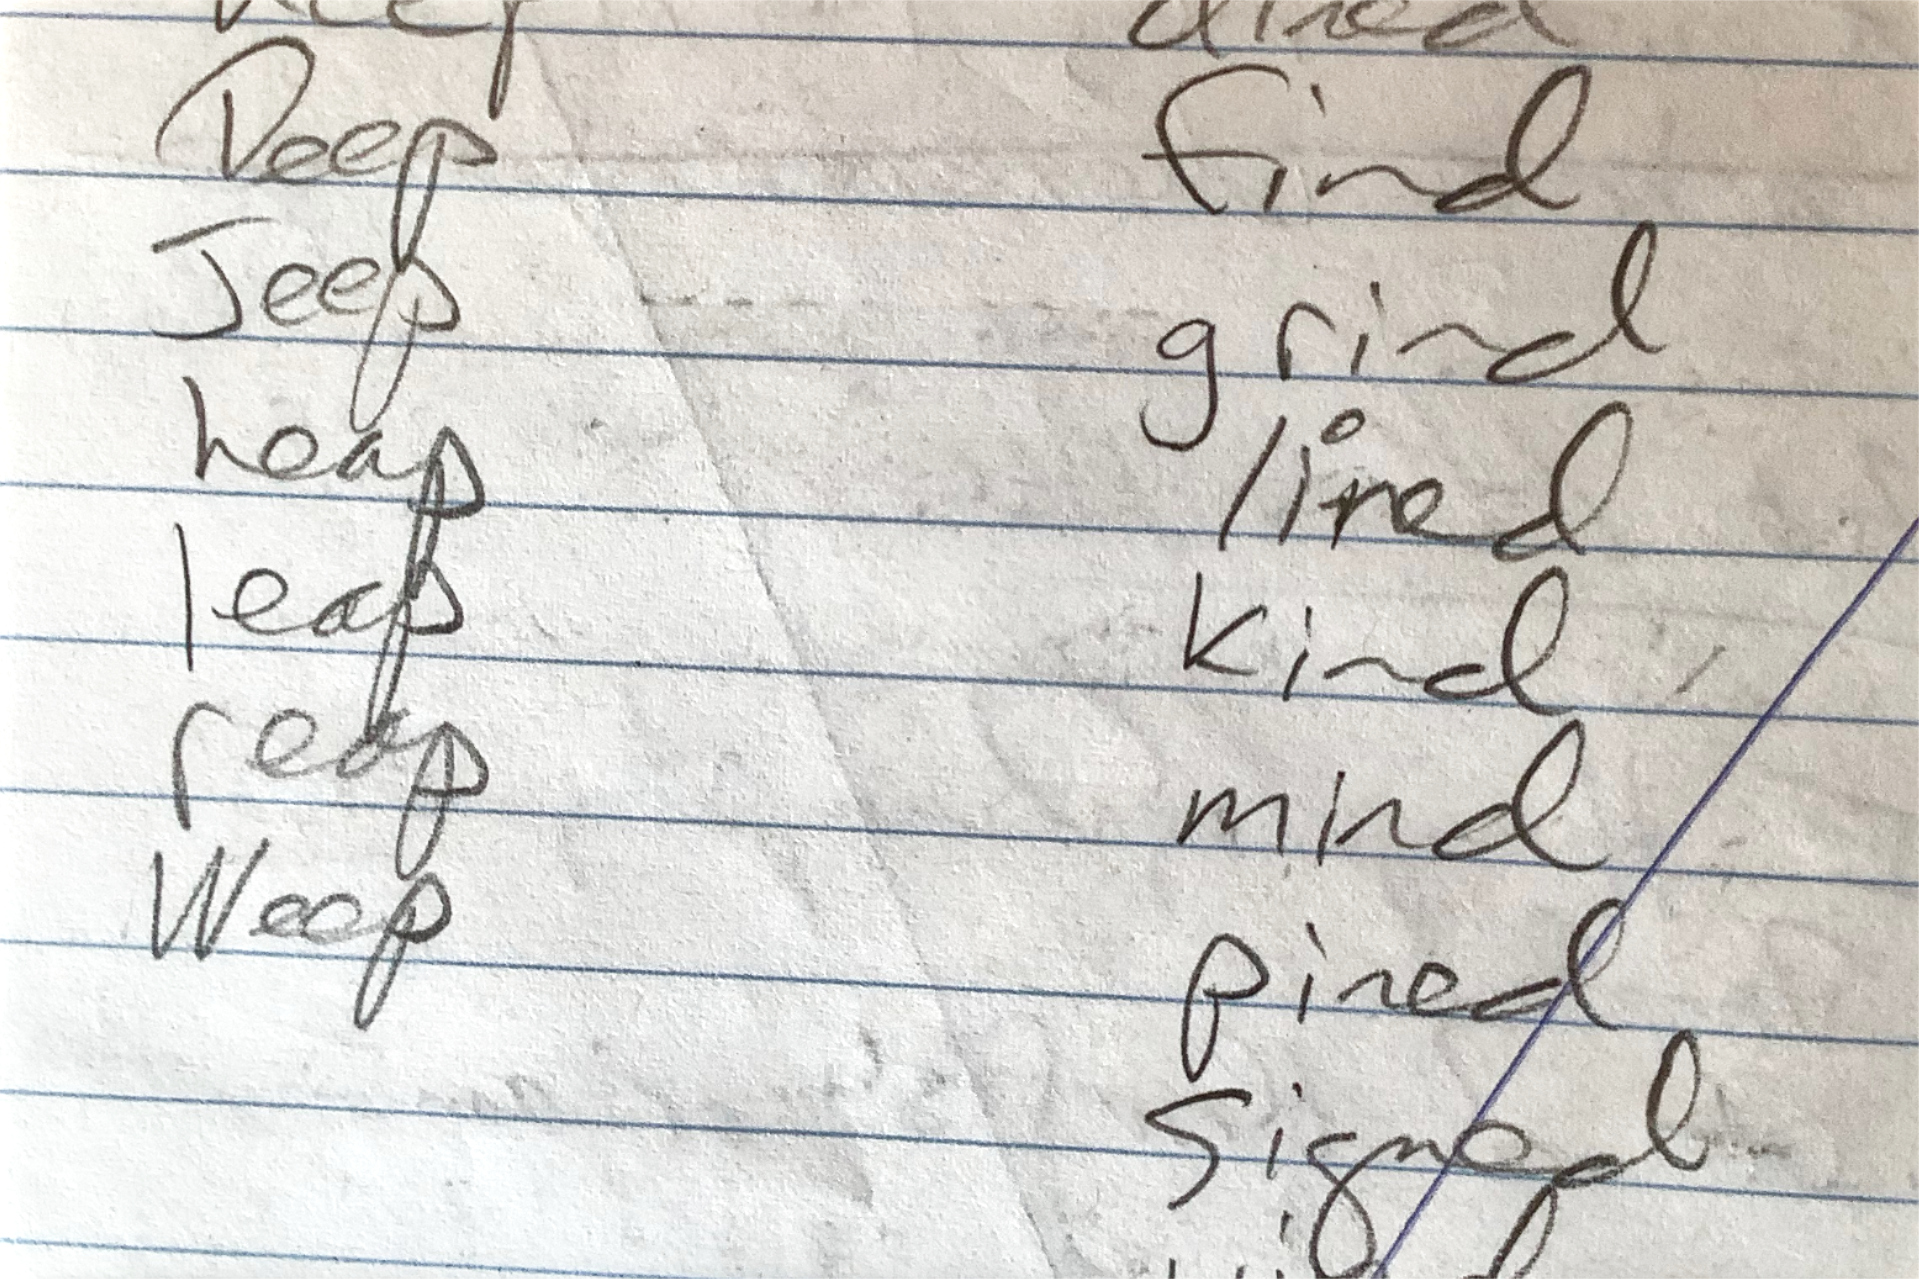 Deep
Jeep
heap
leap
reap
Weep
dined
find
grind
lined
kind
mind
pined
Signed